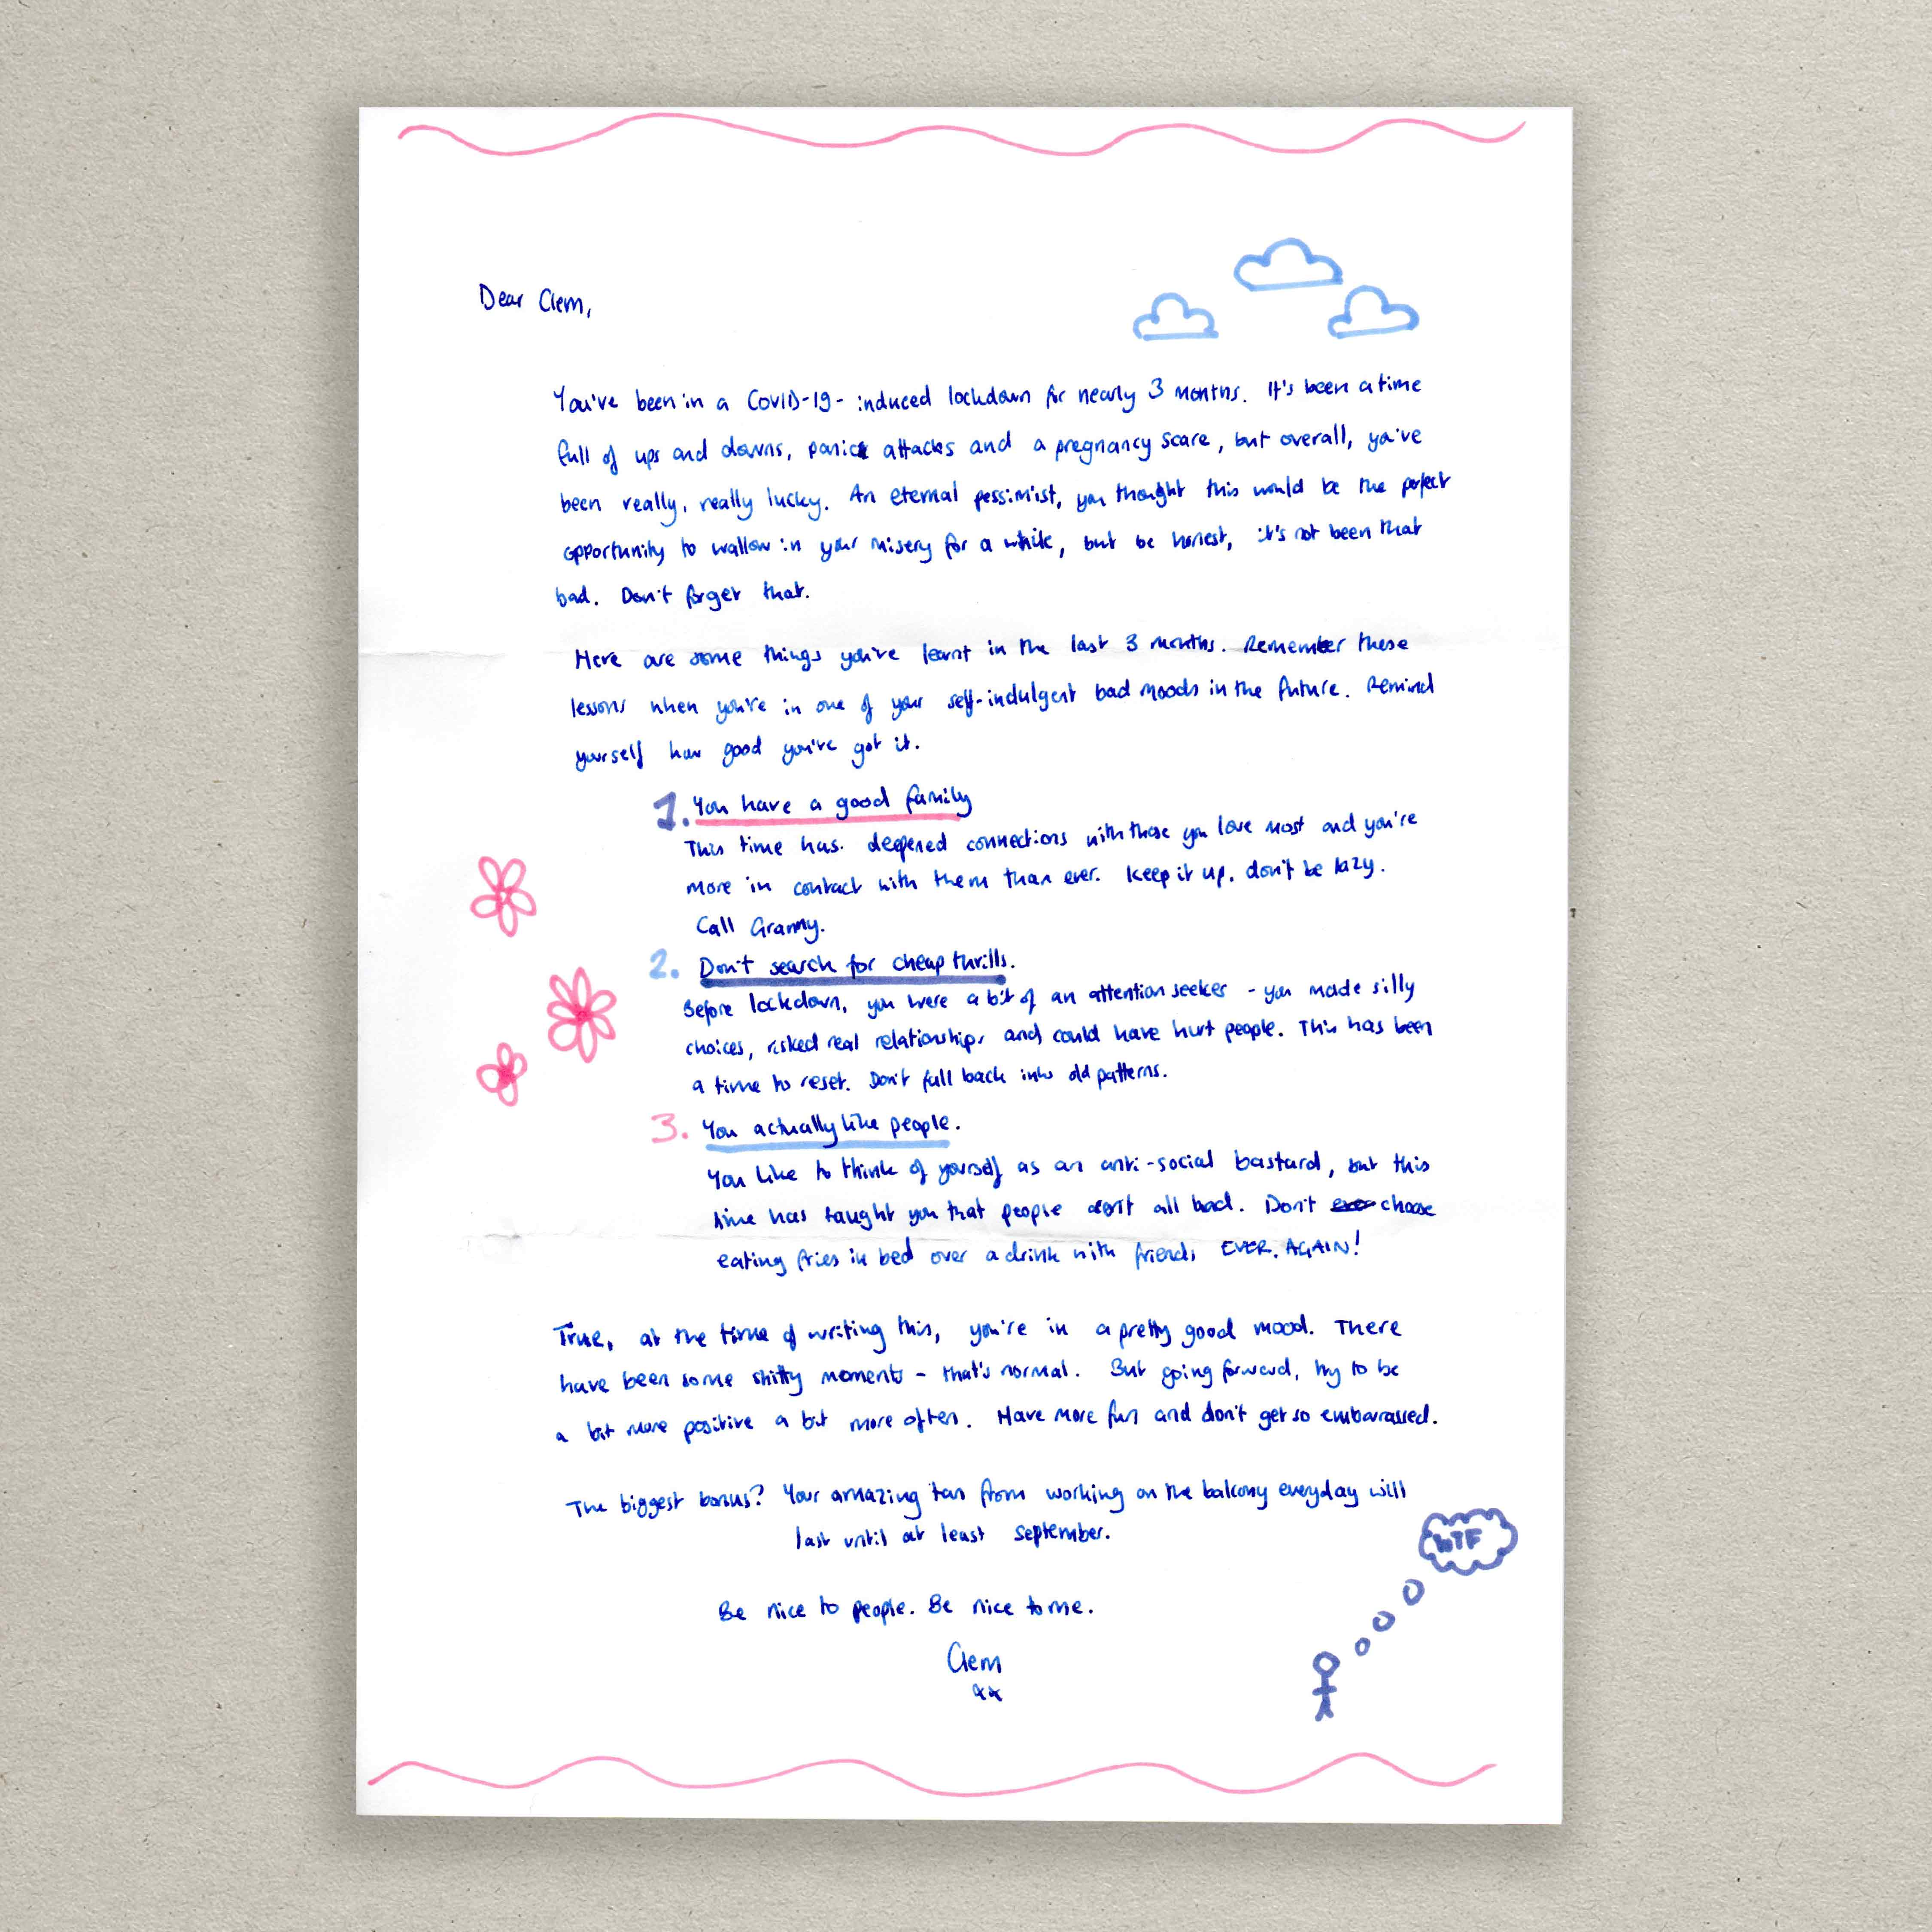 Dear Clem,
You've been in a COVID-19-induced lockdown for nearly 3 months. It's been a time
full of ups and downs, panic attacks and a pregnancy scare, but overall, you've
been really, really lucky. An eternal pessimist, you thought this would be the perfect
opportunity to wallow in your misery for a while, but be honest, it's not been that
bad. Don't forget that.
Here are some things you've learnt in the last 3 months. Remember these
lessons when you're in one of your self-indulgent bad moods in the future. Remind
yourself how good you've got it.
1. You have a good family
This time has deepened connections with those you love most and you're
more in contact with them than ever. Keep it up, don't be lazy.
Call Granny.
2. Don't search for cheap thrills.
Before lockdown, you were a bit of an attention seeker - you made silly
choices, risked real relationships and could have hurt people. This has been
a time to reset. Don't fall back into old patterns.
3. You actually like people.
You like to think of yourself as an anti-social bastard, but this
time has taught you that people aren't all bad. Don't choose
eating fries in bed over a drink with friends EVER. AGAIN!
True, at the time of writing this, you're in a pretty good mood. There
have been some shitty moments - that's normal. But going forward, try to be
a bit more positive a bit more often. Have more fun and don't get so embarrassed.
The biggest bonus? Your amazing tan from working on the balcony everyday will
last until at least September.
WTF
Be nice to people. Be nice to me.
Clem
xx